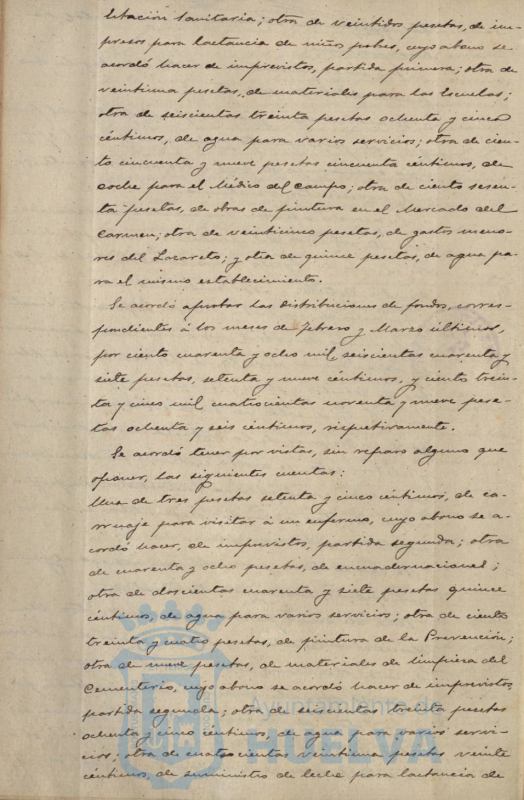 tetación sanitaria; otra de veintidos pesetas, de im-
presos para lactancia de niños pobres, cuyo abono se
acordó hacer de imprevistos, partida primera; otra de
veintiuna pesetas, de materiales para las Escuelas;
otra de seiscientas treinta pesetas ochenta y cinco
céntimos, de agua para varios servicios; otra de cien-
to cincuenta y nueve pesetas cincuenta céntimos, de
coche para el Médico del Campo; otra de ciento sesen-
ta pesetas, de obras de pintura en el Mercado del
Carmen; otra de veinticinco pesetas, de gastos meno-
res del Lazareto; y otra de quince pesetas, de agua pa-
ra el mismo establecimiento.
Se acordó aprobar las distribuciones de fondos, corres-
pondientes á los meses de Febrero y Marzo últimos,
por ciento cuarenta y ocho mil seiscientas cuarenta y
siete pesetas, setenta y nueve céntimos, y ciento trein-
ta y cinco mil cuatrocientas noventa y nueve pese-
tas ochenta y seis céntimos, respectivamente.
Se acordó tener por vistas, sin reparo alguno que
oponer, las siguientes cuentas:
Una de tres pesetas setenta y cinco céntimos, de ca-
rruaje para visitar á un enfermo, cuyo abono se a-
cordó hacer, de imprevistos, partida segunda; otra
de cuarenta y ocho pesetas, de encuadernaciones;
otra de doscientas cuarenta y siete pesetas quince
céntimos, de agua para varios servicios; otra de ciento
treinta y cuatro pesetas, de pintura de la Prevención;
otra de nueve pesetas, de materiales de limpieza del
Cementerio, cuyo abono se acordó hacer de imprevistos,
partida segunda; otra de seiscientas treinta pesetas
ochenta y cinco céntimos, de agua para varios servi-
cios; otra de cuatrocientas veintiuna pesetas veinte
céntimos, de suministro de leche para lactancia de
Ayuntamiento de
HUELVA